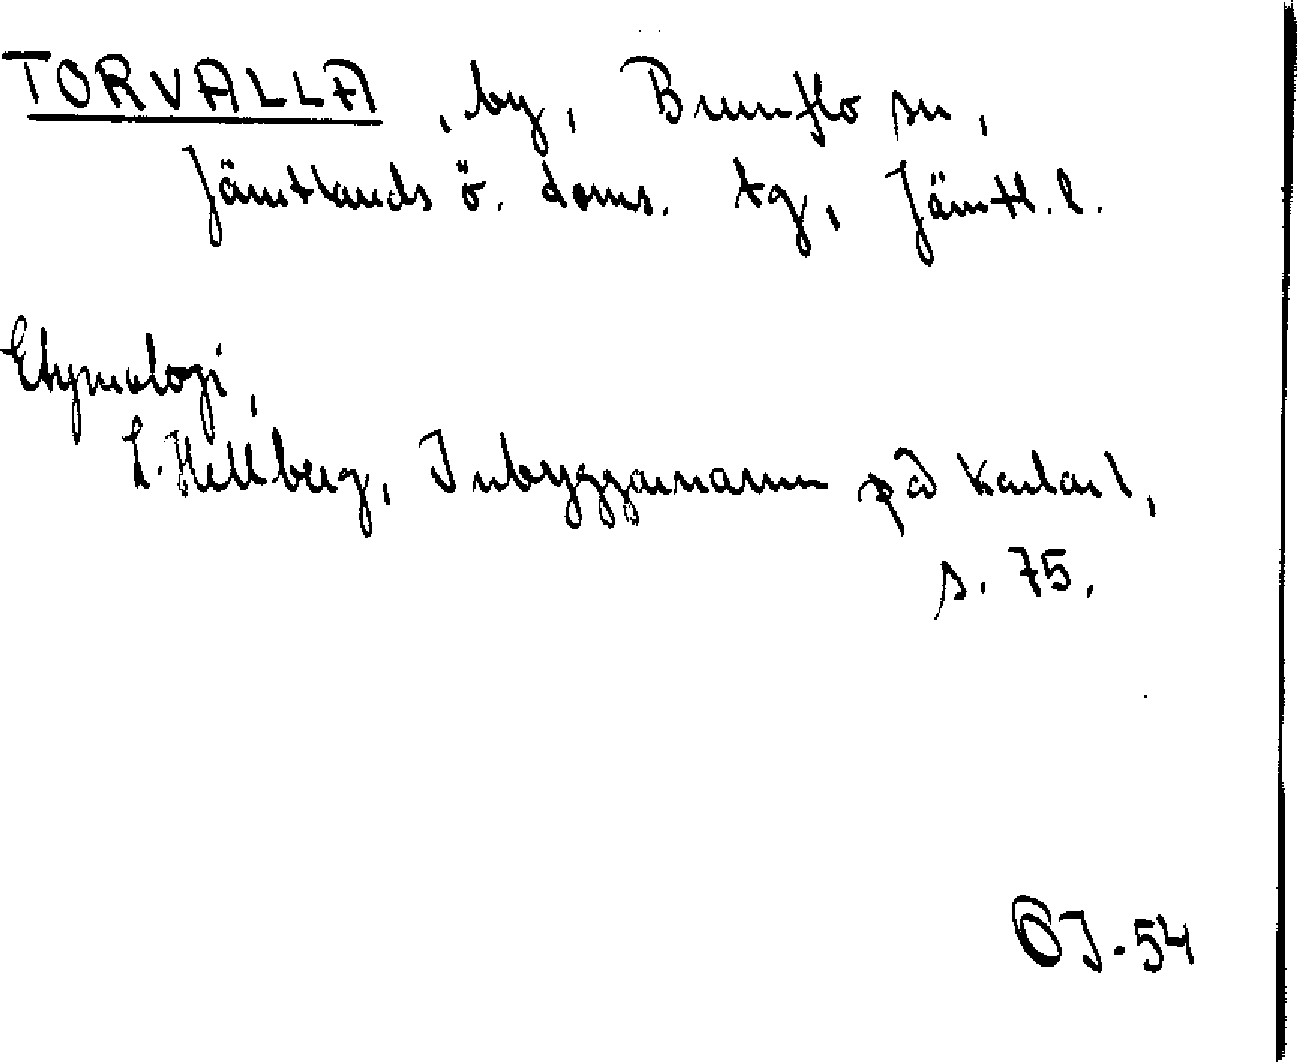 TORVALLA, by, Brunflo sn,
Jämtlands ö. doms. tg, Jämtl. l.
Etymologi,
L. Hellberg, Inbyggarnamn på karlar 1,
s. 75.
OJ-54